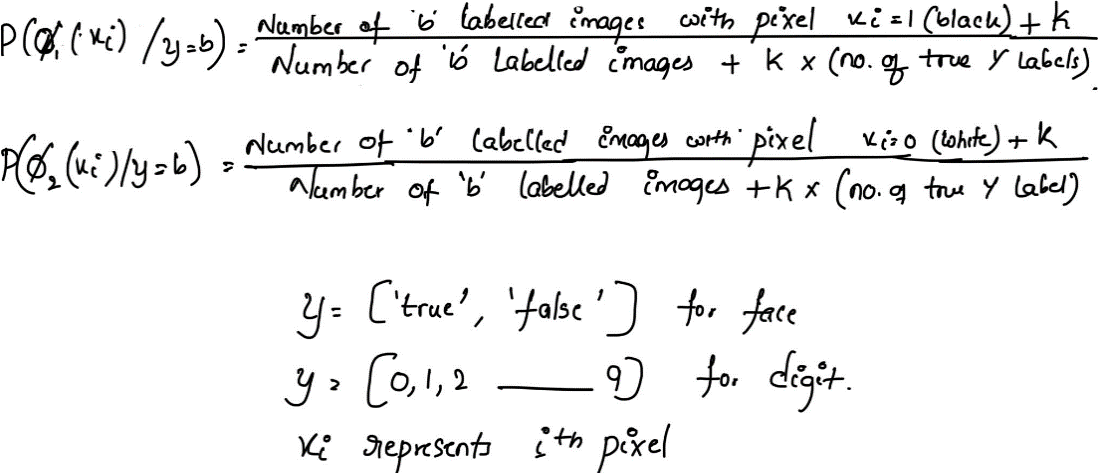 P(Ø₁(xi) / y=b) = Number of 'b' labelled images with pixel xi = 1 (black) + K
Number of 'b' Labelled images + K x (no. of true Y Labels).
P(Ø₂(xi)/y=b) = Number of 'b' labelled images with pixel xi=0 (white) + K
Number of 'b' labelled images + K x (no. of true Y Label)
y = ['true', 'false'] for face
y = [0,1,2 ___ 9] for digit.
xi represents ith pixel